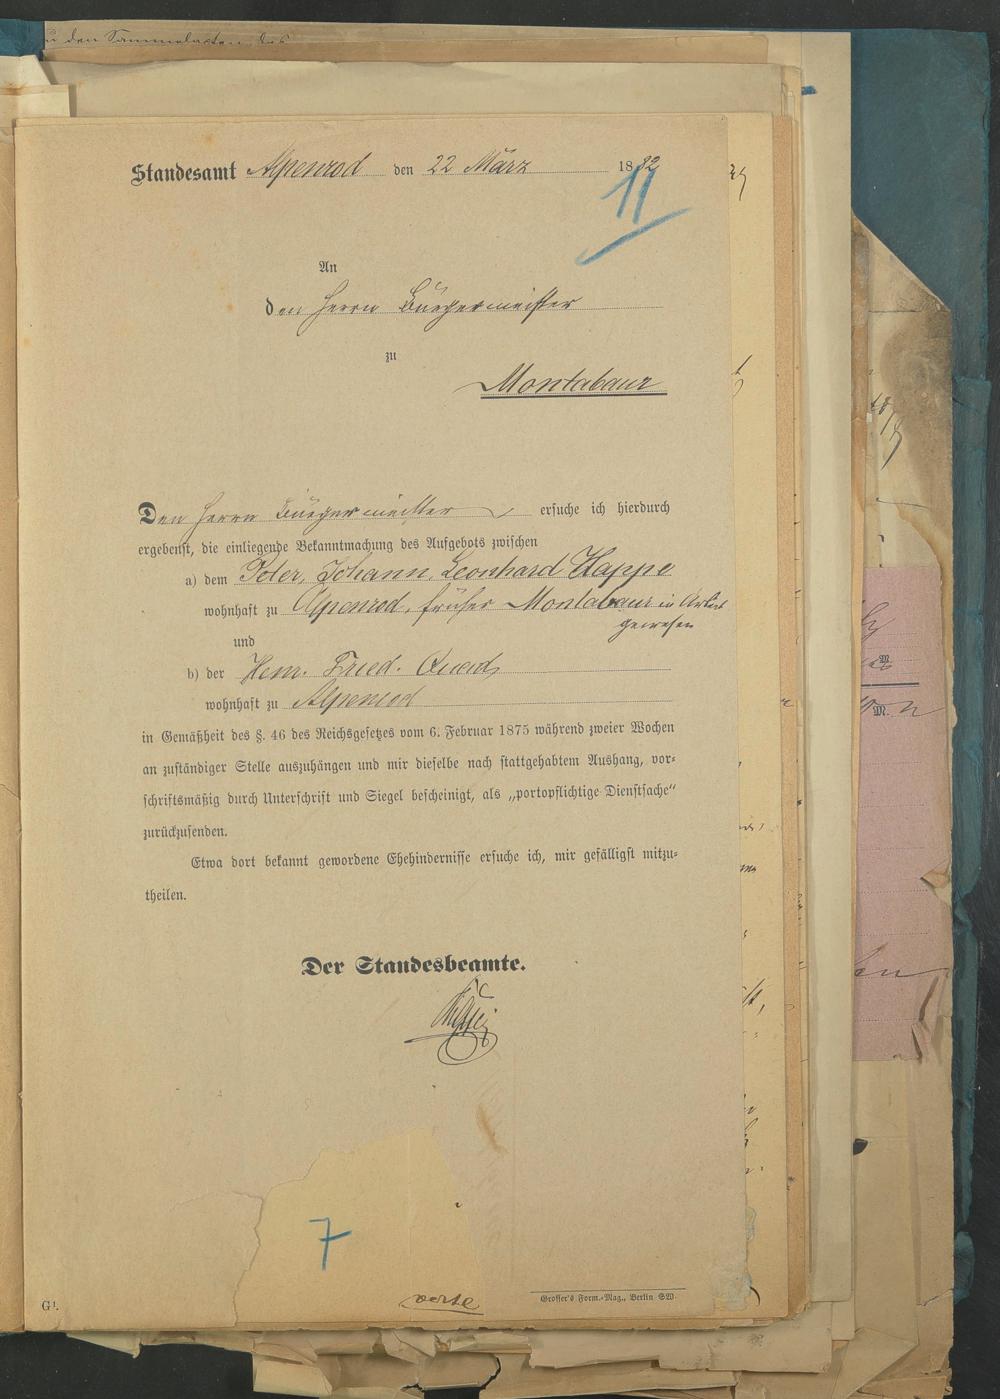 zu den Sammelakten des
Standesamt Alpenrod den 22 März 1882
11
An
den Herrn Bürgermeister
zu
Montabaur
Den Herrn Bürgermeister ersuche ich hierdurch
ergebenst, die einliegende Bekanntmachung des Aufgebots zwischen
a) dem Peter, Johann, Leonhard Happe
wohnhaft zu Alpenrod, früher Montabaur in Arbeit
gewesen
und
b) der Henr. Fried.
wohnhaft zu Alpenrod
in Gemäßheit des §. 46 des Reichsgesetzes vom 6. Februar 1875 während zweier Wochen
an zuständiger Stelle auszuhängen und mir dieselbe nach stattgehabtem Aushang, vor-
schriftsmäßig durch Unterschrift und Siegel bescheinigt, als „portopflichtige Dienstsache“
zurückzusenden.
Etwa dort bekannt gewordene Ehehindernisse ersuche ich, mir gefälligst mitzu-
theilen.
Der Standesbeamte.
7
verte
G¹.
Grosser's Form.-Mag., Berlin SW.